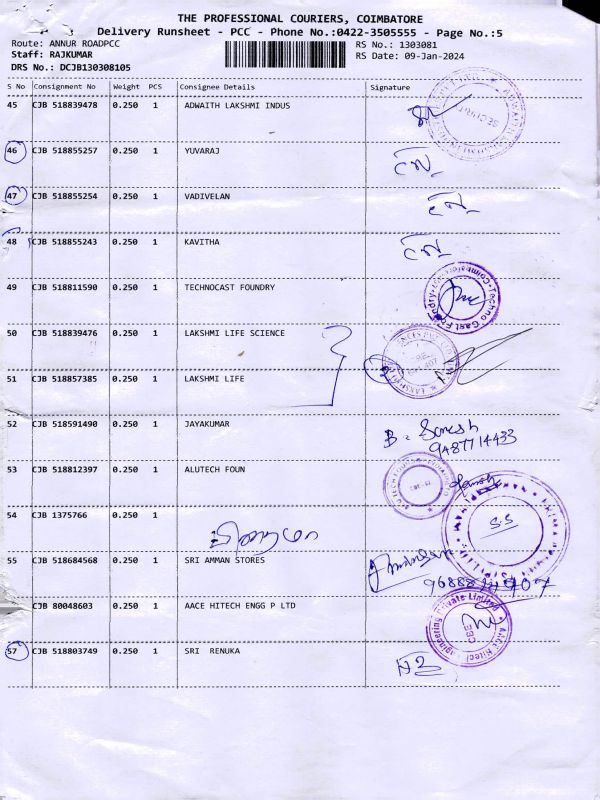 THE PROFESSIONAL COURIERS, COIMBATORE
Delivery Runsheet - PCC - Phone No.:0422-3505555 - Page No.:5
Route: ANNUR ROADPCC RS No.: 1303081
Staff: RAJKUMAR RS Date: 09-Jan-2024
DRS No.: DCJB130308105
S No Consignment No Weight PCS Consignee Details Signature
45 CJB 518839478 0.250 1 ADWAITH LAKSHMI INDUS
SECURITY
46 CJB 518855257 0.250 1 YUVARAJ
47 CJB 518855254 0.250 1 VADIVELAN
48 CJB 518855243 0.250 1 KAVITHA
49 CJB 518811590 0.250 1 TECHNOCAST FOUNDRY
Techno Cast Foundry Coimbatore
50 CJB 518839476 0.250 1 LAKSHMI LIFE SCIENCE
51 CJB 518857385 0.250 1 LAKSHMI LIFE
52 CJB 518591490 0.250 1 JAYAKUMAR
B. Suresh
9487714433
53 CJB 518812397 0.250 1 ALUTECH FOUN
54 CJB 1375766 0.250 1
S.S
55 CJB 518684568 0.250 1 SRI AMMAN STORES
CJB 80048603 0.250 1 AACE HITECH ENGG P LTD
AACE Hitech Engineering Private Limited
57 CJB 518803749 0.250 1 SRI RENUKA